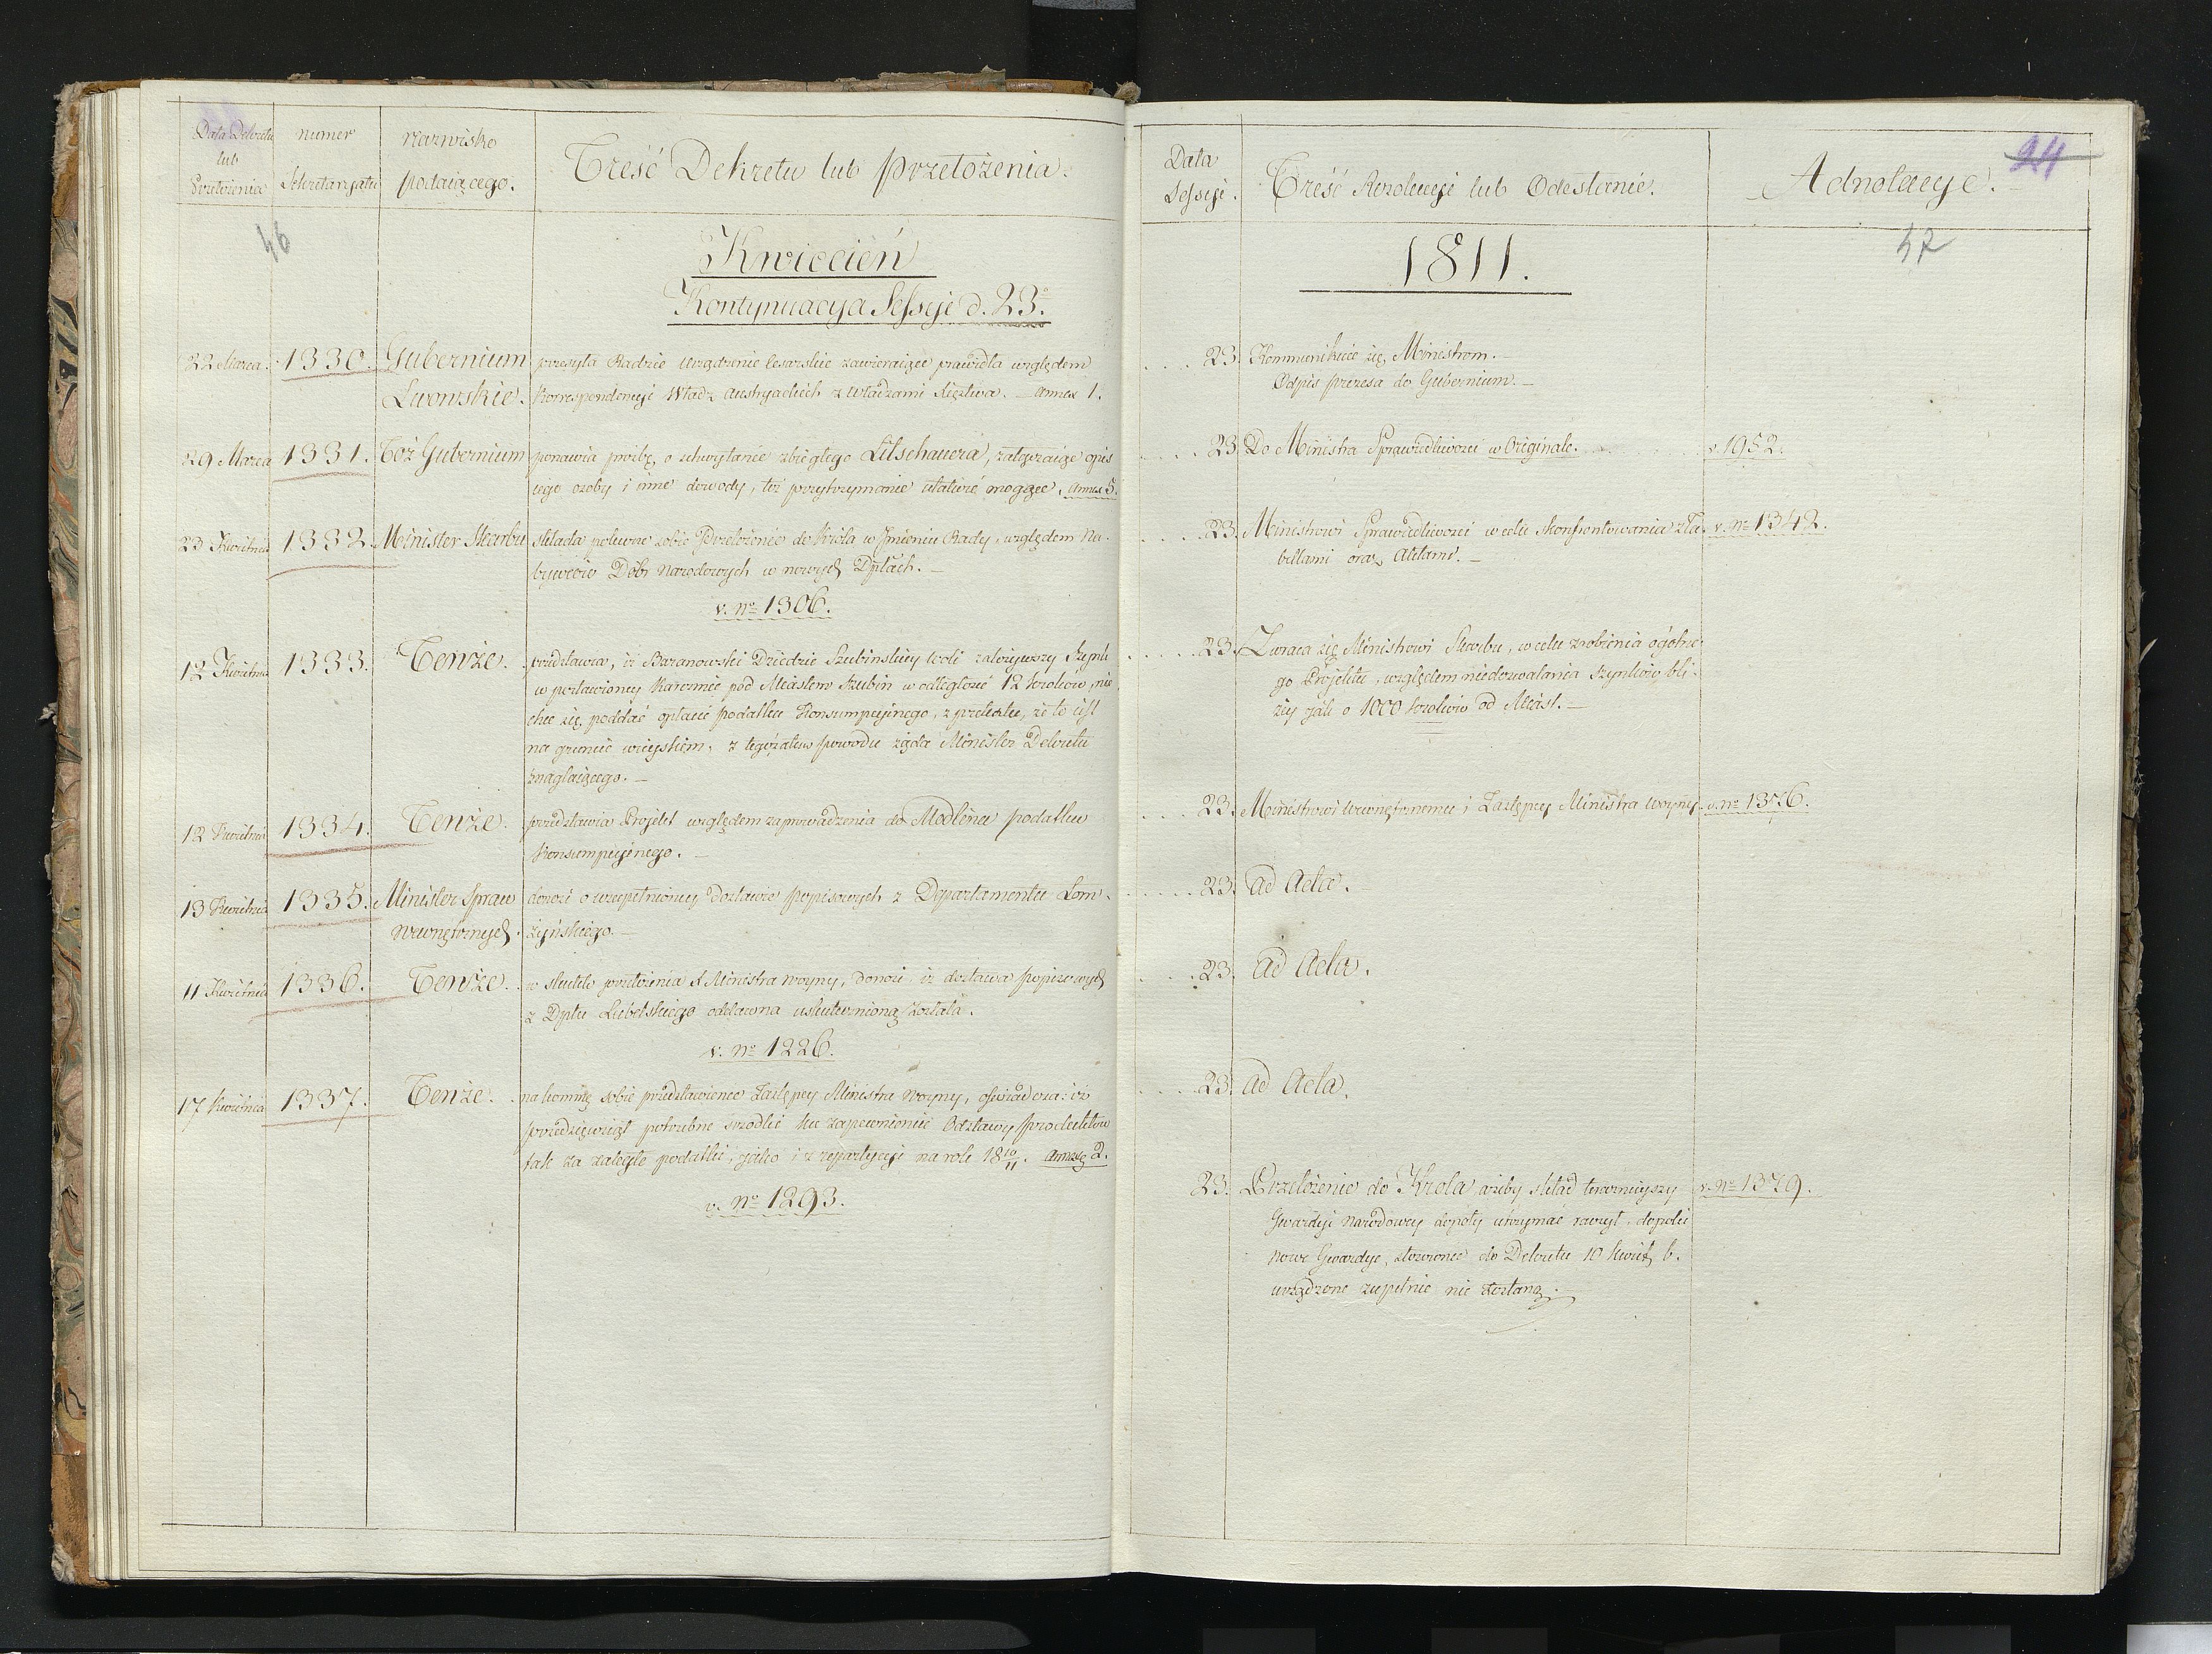 Data Dekretu
lub
Przełożenia
numer
Sekretaryatu
nazwisko
podaiącego.
Treść Dekretu lub przełożenia.
46
Kwiecień
Kontynuacya Sessyi d. 23.
22 Marca. 1330. Gubernium przesyła Radzie urządzenie Cesarskie zawieraiące prawidła względem
Lwowskie. korrespondencyi Władz Austryackich z Władzami Xięztwa. — Annex 1.
29 Marca 1331. Toż Gubernium ponawia proźbę, o schwytanie zbiegłego Litschauera, załączaiąc opis
iego osoby i inne dowody, też przytrzymanie ułatwić mogące. Annex 5.
23 Kwietnia 1332. Minister Skarbu składa polecone sobie Przełożenie do Króla w Imieniu Rady, względem Na-
bywców Dóbr Narodowych w nowych Dptach. —
v. no 1306.
12 Kwietnia 1333. Tenże. przedstawia, iż Baranowski Dziedzic Szubinskiey Woli założywszy Szynk
w postawioney karczmie pod Miastem Szubin w odległości 12 kroków, nie
chce się poddać opłacie podatku Konsumpcyinego, z pretextu, że to iest
na gruncie wieyskiem, z tegoż powodu żąda Minister Dekretu
znaglaiącego. —
12 Kwietnia 1334. Tenże. przedstawia Projekt względem zaprowadzenia do Modlina podatku
Konsumpcyinego. —
13 Kwietnia 1335. Minister Spraw donosi o uzupełnioney dostawie popisowych z Departamentu Łom-
Wewnętrznych. żyńskiego. —
11 Kwietnia 1336. Tenże. w skutku przełożenia Ministra Woyny, donosi, iż dostawa popisowych
z Dptu Lubelskiego oddawna uskutecznioną została.
v. no 1226.
17 Kwietnia 1337. Tenże. na kommę sobie przedstawienie Zastępcy Ministra Woyny, oświadcza: iż
przedsięwziął potrzebne środki ku zapewnieniu Odstawy produktów
tak za zaległe podatki, jako i z repartycyi na rok 18 10/11. Annexa 2.
v. no 1293.
Data
Sessyi.
Treść Rezolucyi lub Odesłanie.
Adnotacye.
24
47
1811.
23. Kommunikuie się Ministrom. —
Odpis prezesa do Gubernium. —
23. Do Ministra Sprawiedliwości w Originale. v 1952.
23. Ministrowi Sprawiedliwości w celu skonfrontowania z Ta- v. no 1342.
bellami oraz Aktami. —
23. Zwraca się Ministrowi Skarbu, w celu zrobienia ogólne-
go Projektu, względem niedozwalania Szynków bli-
żey jak o 1000 kroków od Miast. —
23. Ministrowi Wewnętrznemu i Zastępcy Ministra Woyny. v. no 1376.
23. ad Acta.
23. ad Acta.
23. ad Acta.
23. Przełożenie do Króla, ażeby skład teraznieyszy v. no 1379.
Gwardyi Narodowey dopóty utrzymać raczył, dopóki
nowe Gwardye, stosownie do Dekretu 10 Kwiet. b.
urządzone zupełnie nie zostaną.